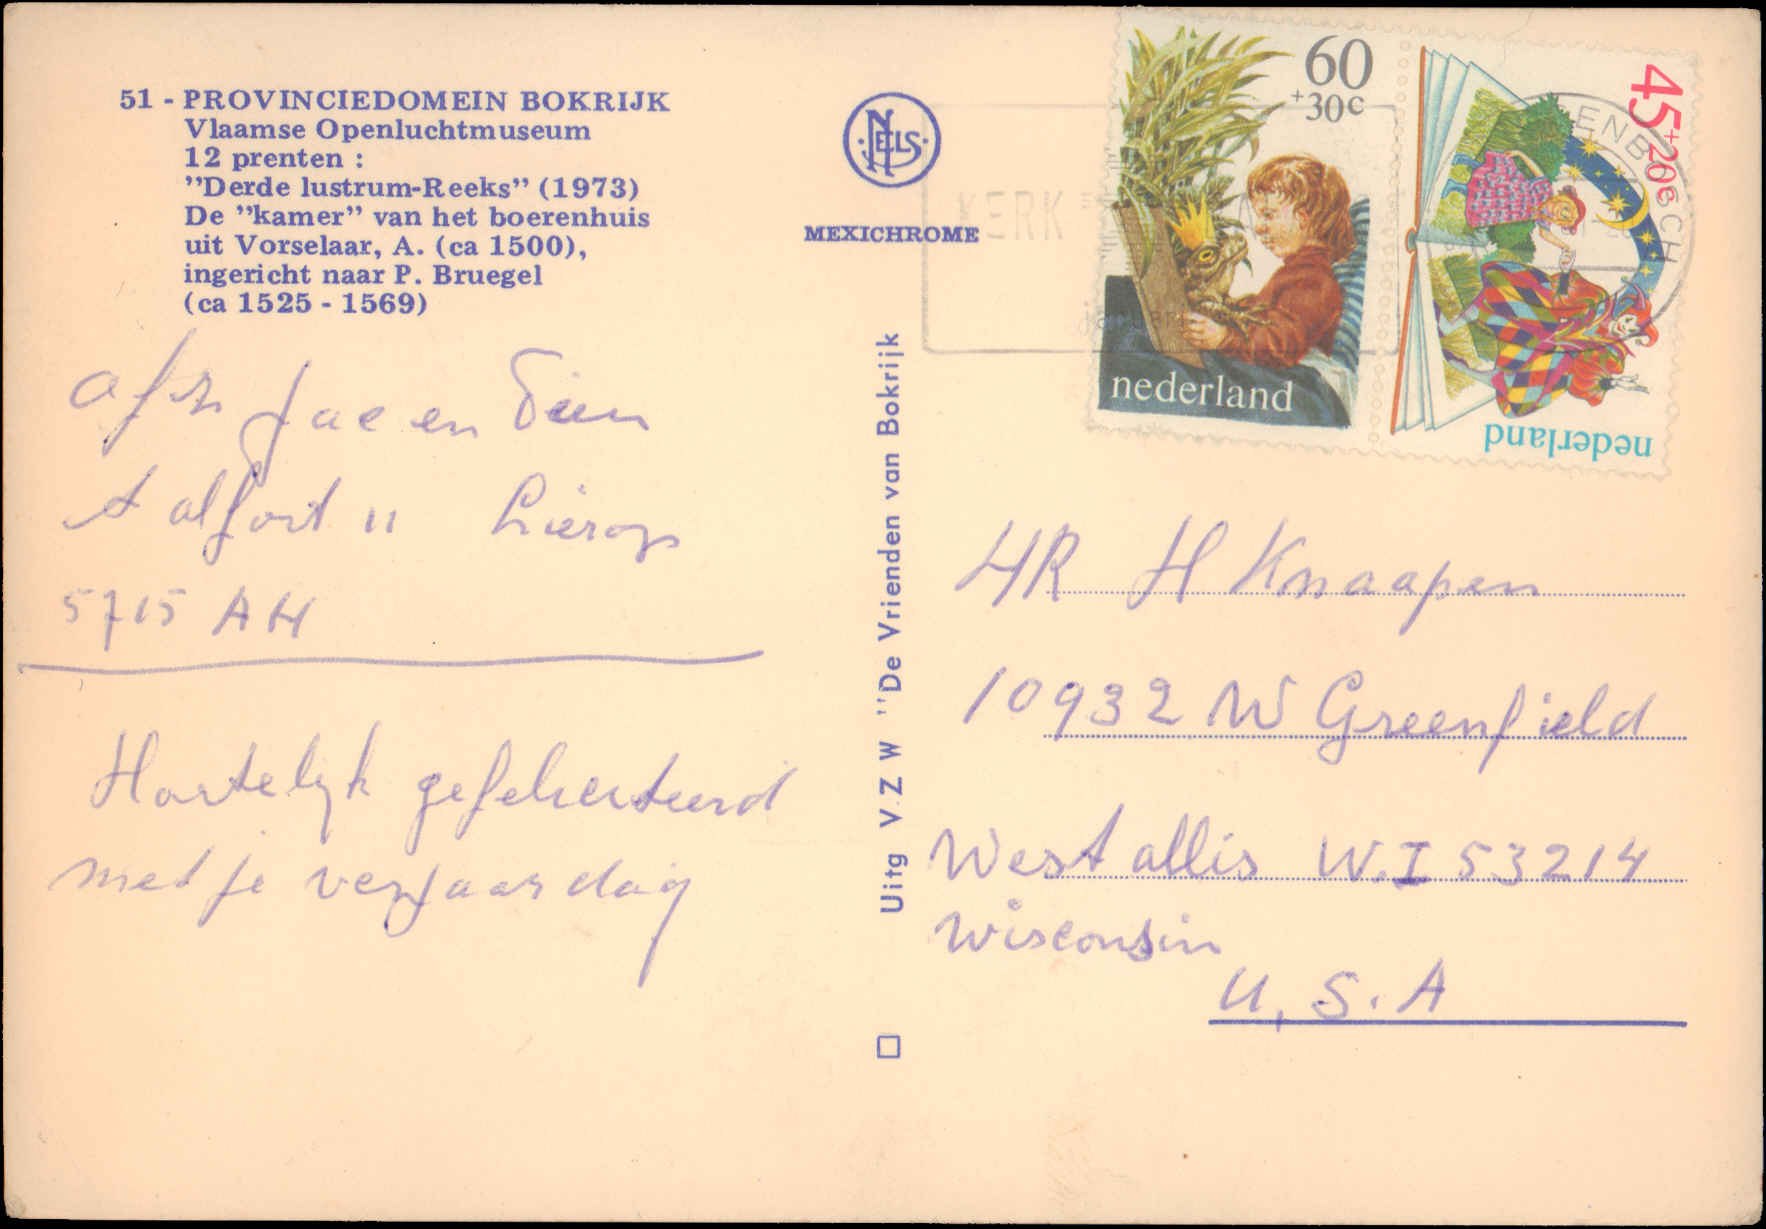 51 - PROVINCIEDOMEIN BOKRIJK
Vlaamse Openluchtmuseum
12 prenten :
”Derde lustrum-Reeks” (1973)
De ”kamer” van het boerenhuis
uit Vorselaar, A. (ca 1500),
ingericht naar P. Bruegel
(ca 1525 - 1569)
NELS
MEXICHROME
60
+30c
nederland
45+20c
nederland
KERK
ENBOSCH
afz Jac en Dien
talfort 11 Lierop
5715 AH
Hartelyk gefeliciteerd
met je verjaardag
Uitg V.Z W ”De Vrienden van Bokrijk
HR H Knaapen
10932 W Greenfield
West allis W.I 53214
Wisconsin
U, S. A